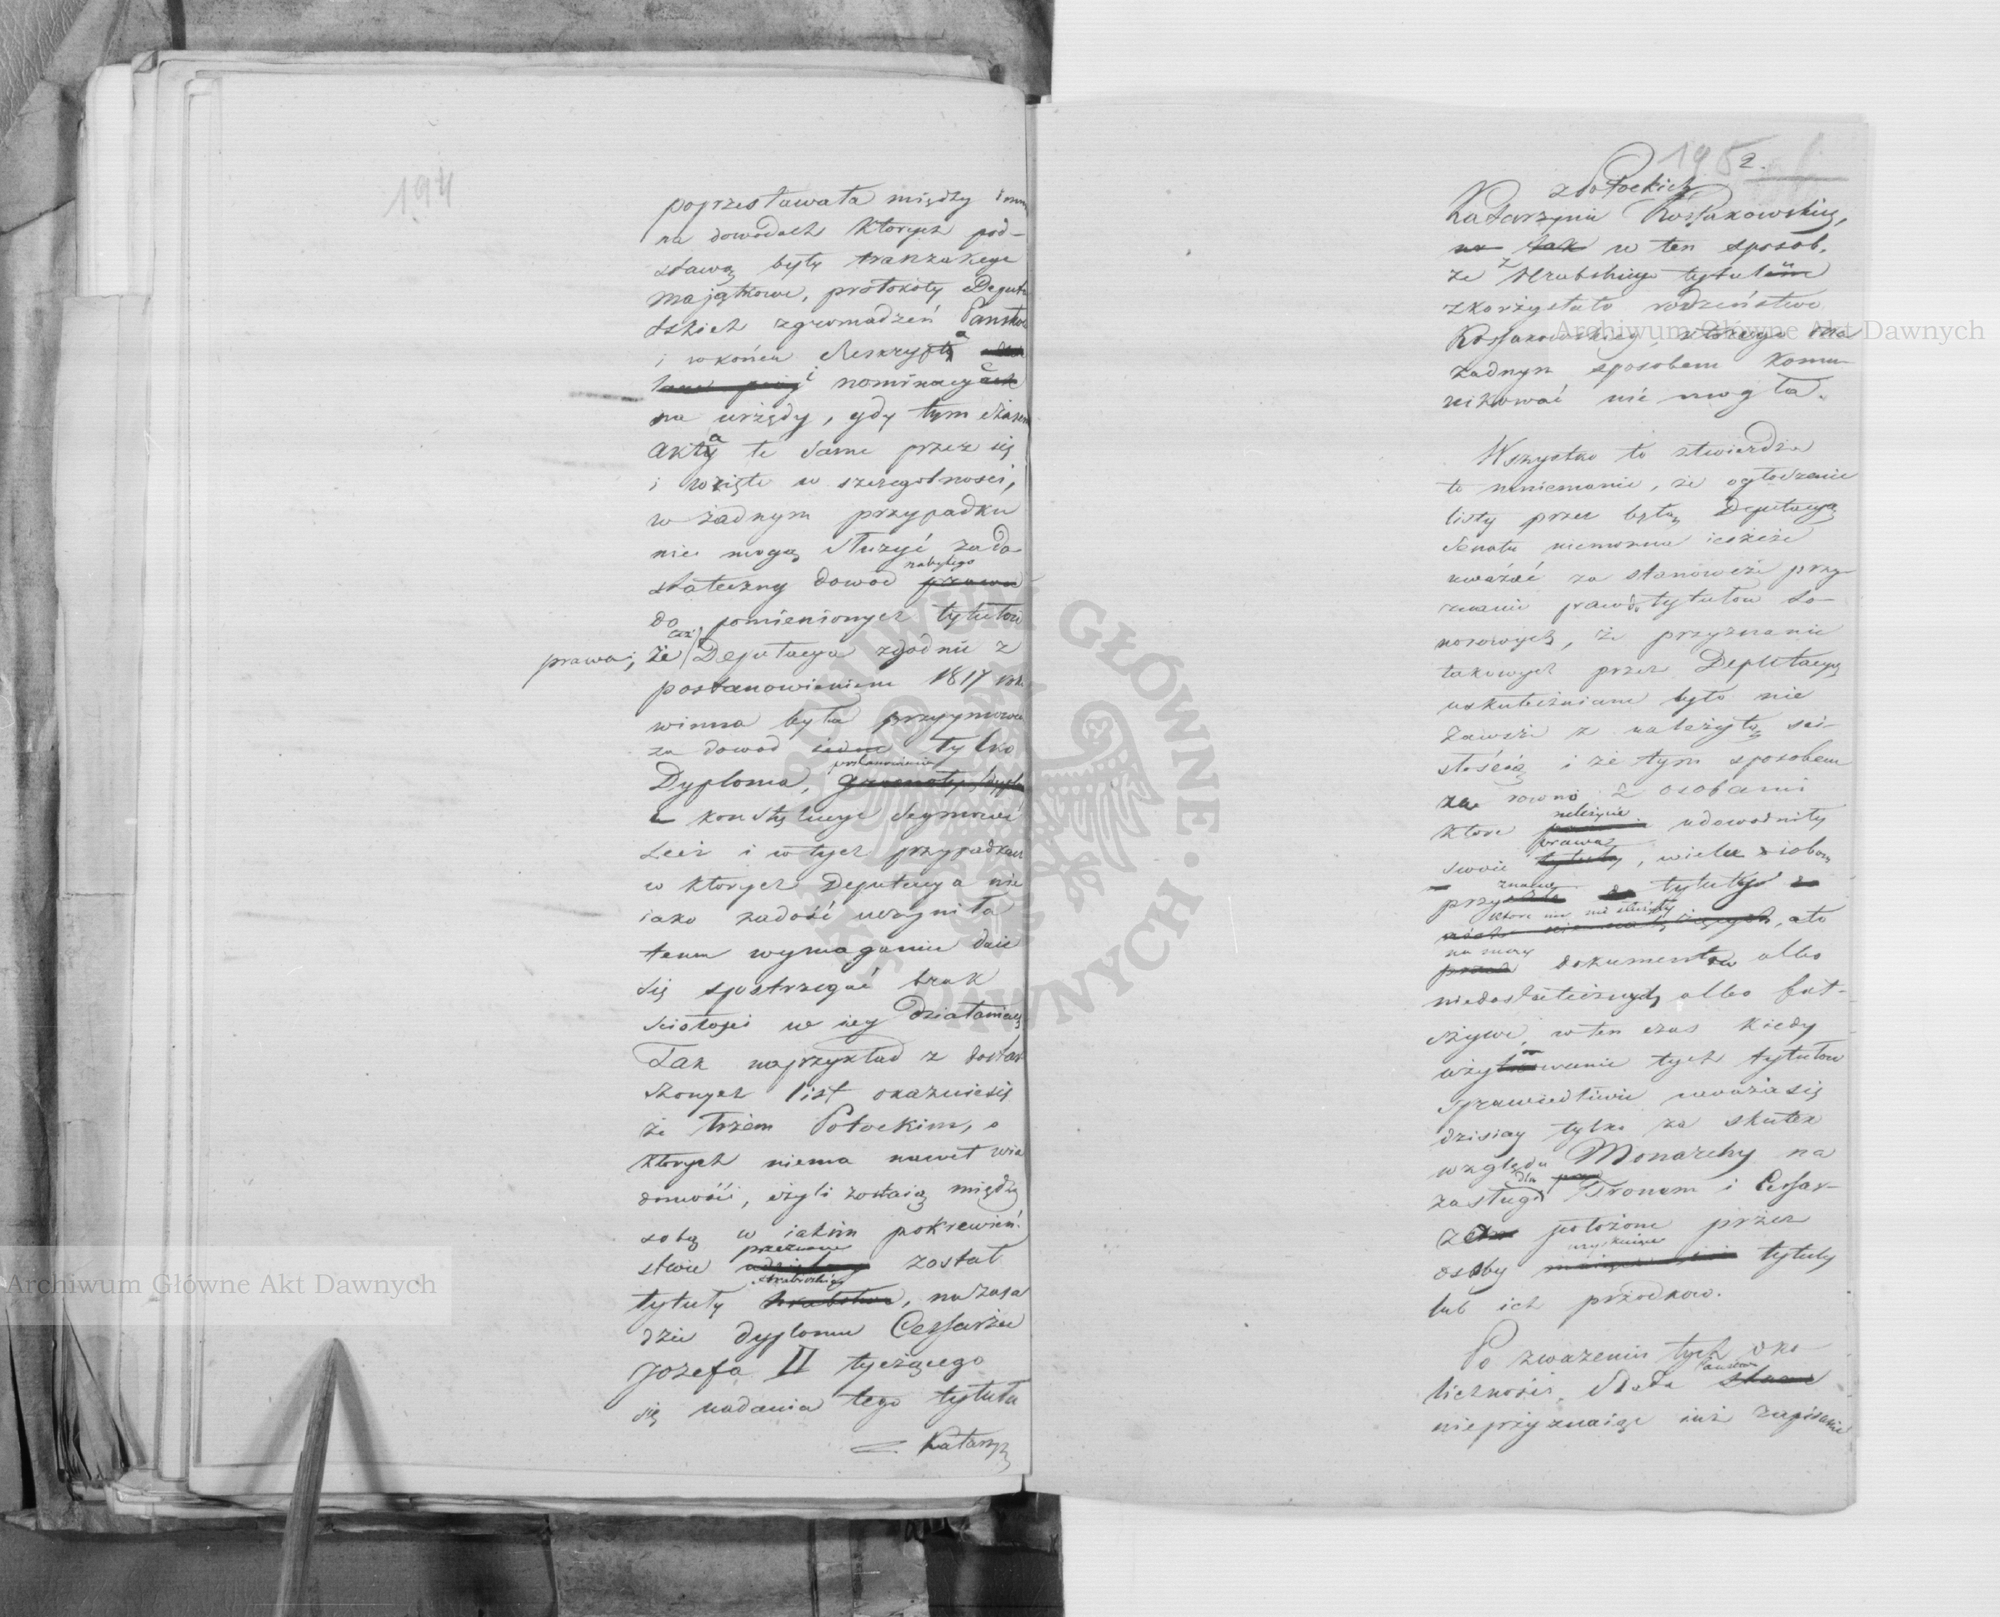 194
poprzestawała między innemi
na dowodach których pod-
stawą były tranzakcye
majątkowe, protokoły Deputa
skich zgromadzeń Państw
i wkońcu Reskrypta
i nominacye
na urzędy, gdy tym czasem
akta te same przez się
i wzięte w szczególności,
w żadnym przypadku
nie mogą służyć za do-
stateczny dowód nabytego
do pomienionych tytułów
prawa; że Deputacya zgodnie z
postanowieniem 1817 roku
winna była przyymować
za dowód tylko
Dyploma, postanowienia
konstytucye Seymowe
Lecz i w tych przypadkach
w których Deputacya nie
iako zadość uczyniła
temu wymaganiu daie
się spostrzegać brak
ścisłości w iey działaniach
Tak naprzykład z dostar
czonych list okazuiesię
że trzem Potockim, o
których niema nawet wia
domości, czyli zostaią między
sobą w iakim pokrewień-
stwie przyznane został
tytuły Hrabiowskie, na zasa
dzie dyplomu Cessarza
Jozefa II tyczącego
się nadania tego tytułu
Katarzy
195 2.
z Potockich
Katarzynie Kossakowskiey,
na tak w ten sposób,
że z Hrabskiego tytułu
zkorzystało rodzeństwo
Kossakowskiey którego ona
żadnym sposobem komu-
nikować nie mogła.
Wszystko to stwierdza
te mniemanie, że ogłoszenie
listy przez byłą Deputacyą
Senatu niemożna ieszcze
uważać za stanowcze przy-
znanie prawdo tytułów ho-
norowych, że przyznanie
takowych przez Deputacyą
uskuteczniane było nie
zawsze z należytą ści-
słością i że tym sposobem
za rowno z osobami
które należycie udowodniły
swoie prawa, wielu osobom
przyznane tytuły
które im nie służyły, a to
na mocy dokumentow albo
niedostatecznych albo fał-
szywe, w ten czas kiedy
używanie tych tytułow
sprawiedliwie uważa się
dzisiay tylko za skutek
względu Monarchy na
zasługi dla Tronem i Cesar-
ze położone przez
osoby uzyskuiące tytuły
lub ich przodkow.
Po zważeniu tych oko-
liczności, Rada
nieprzyznaiąc iuż zapisanie
Archiwum Główne Akt Dawnych
Archiwum Główne Akt Dawnych
ARCHIWUM GŁÓWNE AKT DAWNYCH